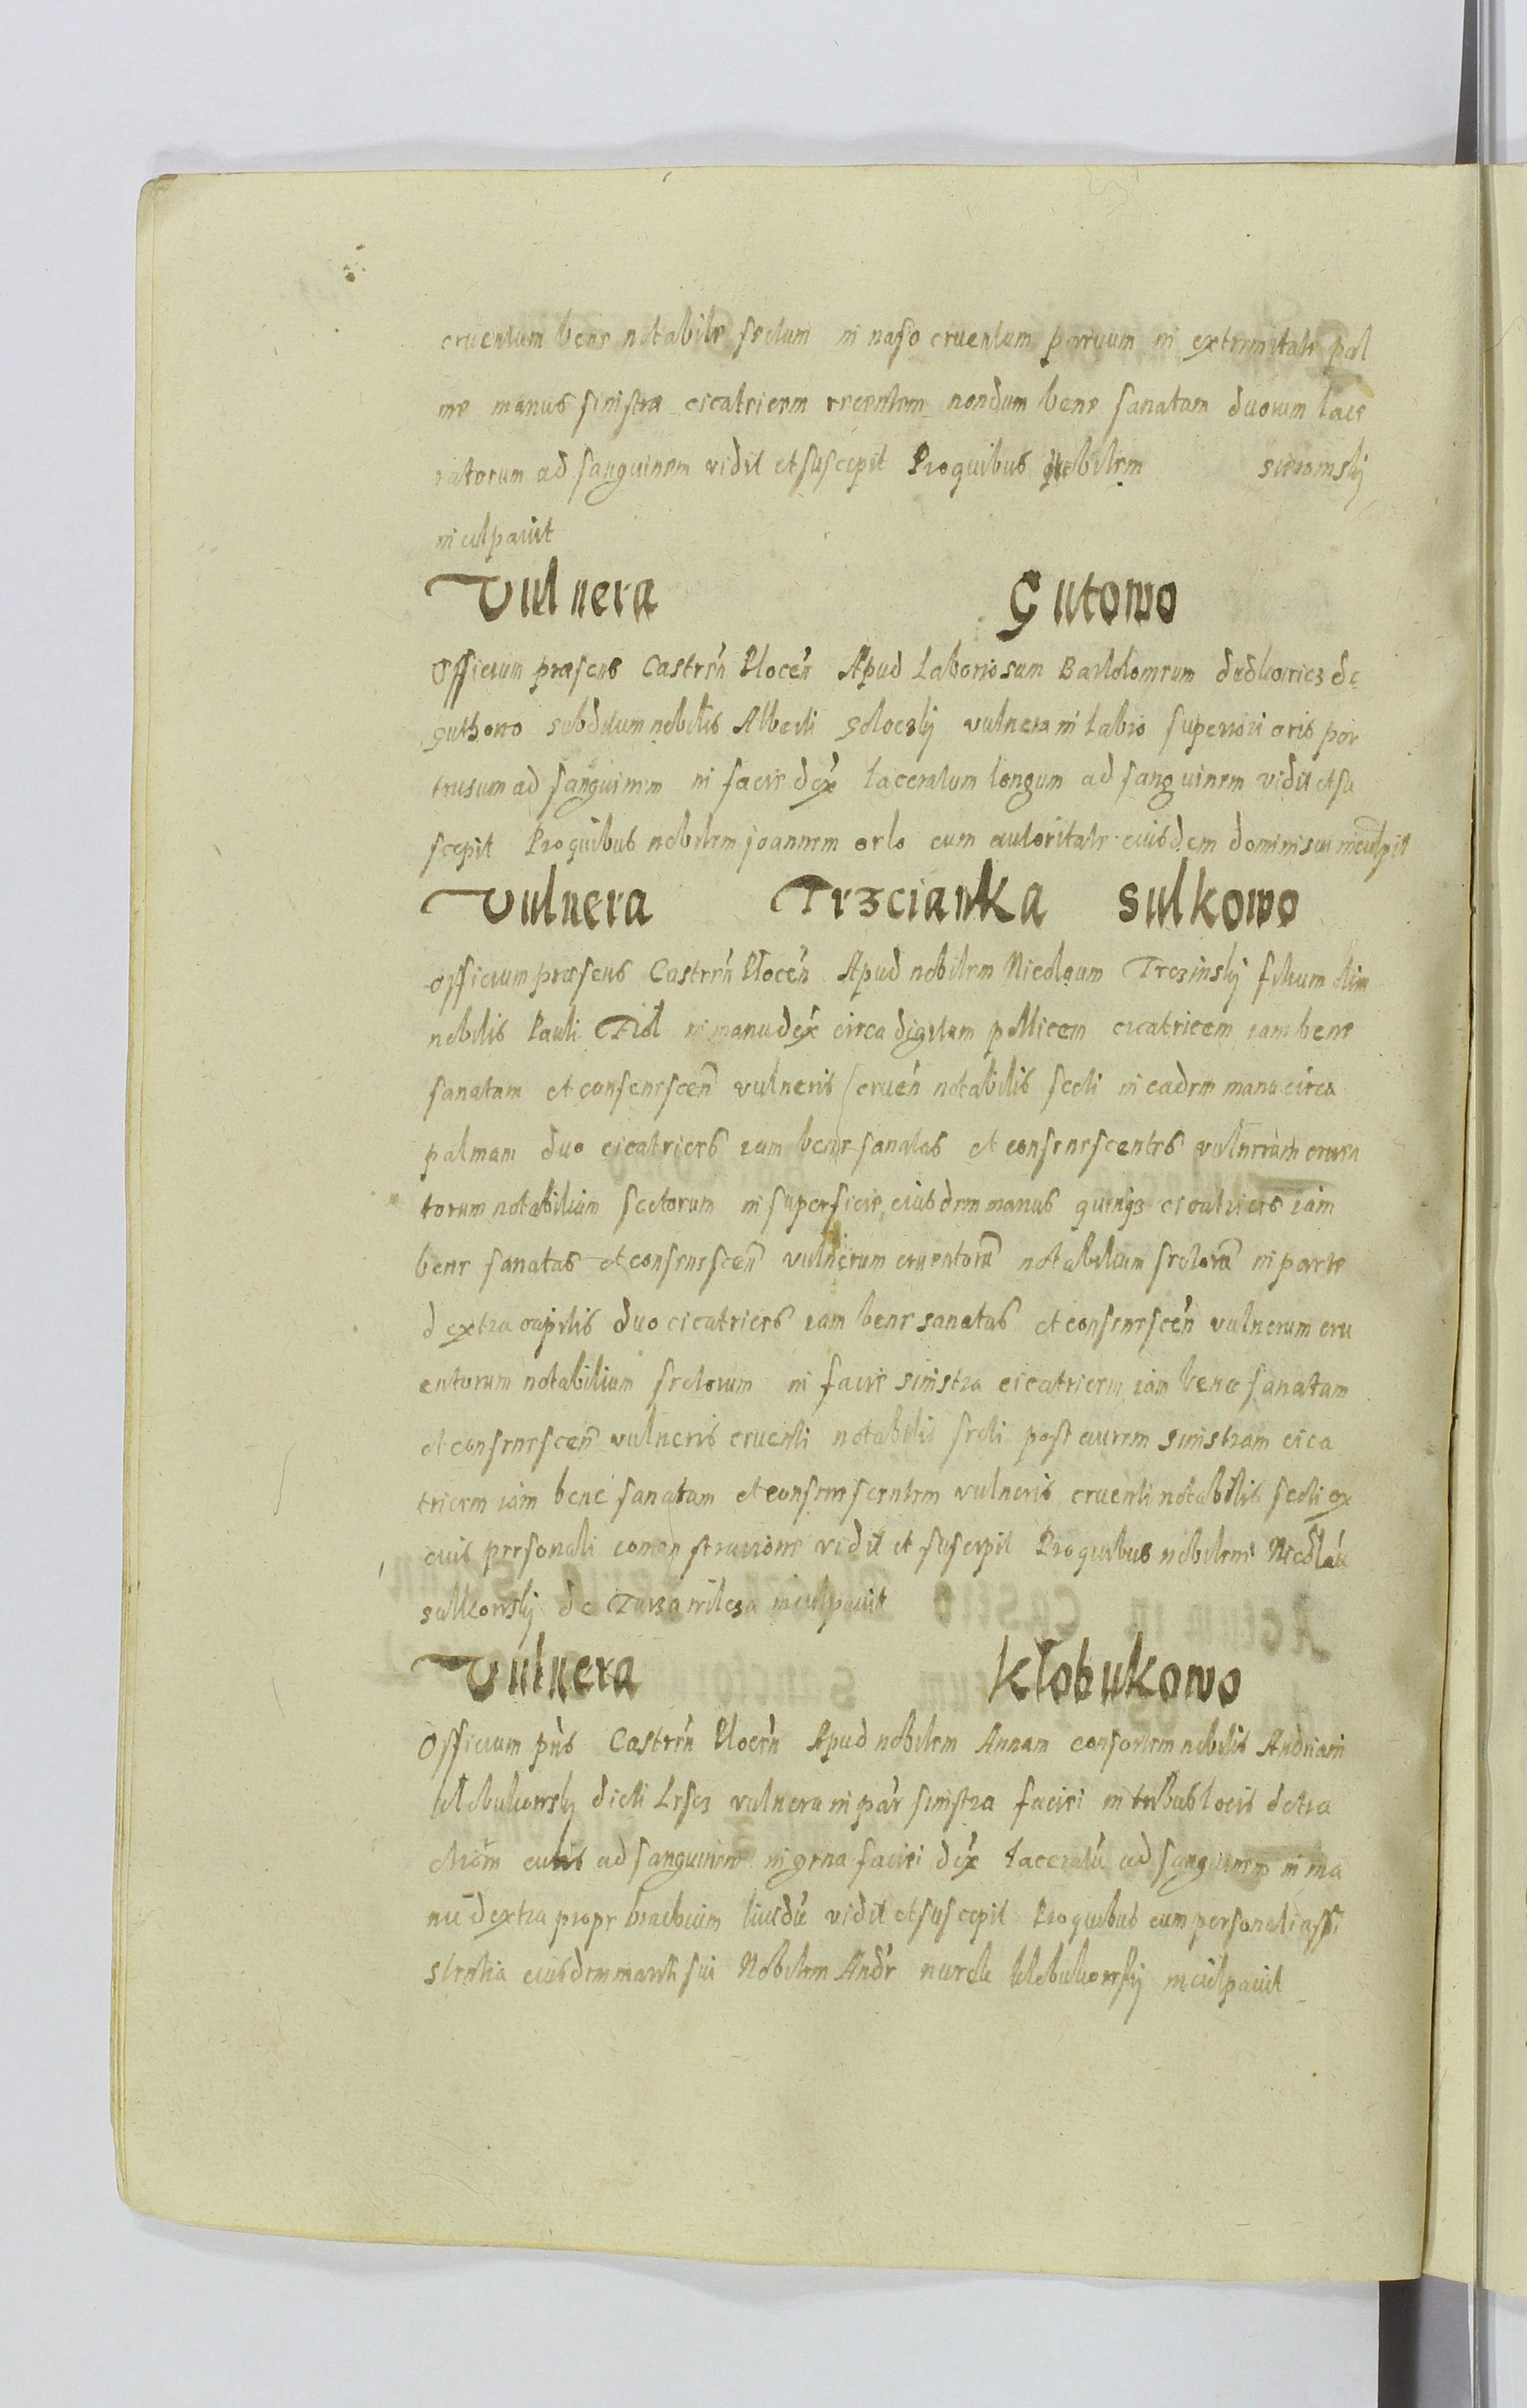 cruentum bene notabile sectum in naso cruentum paruum in extremitate pal
me manus sinistra cicatricem recentem nondum bene sanatam duorum lace
ratorum ad sanguinem vidit et suscepit Pro quibus nobilem
inculpauit
Vulnera Gutowo
Officium præsens Castreń Płoceń Apud Laboriosum Bartolomeum de
guthowo subditum nobilis Alberti vulnera in labro superiori oris per
trusum ad sanguinem in facie dex laceratum longum ad sanguinem vidit et su
scepit Pro quibus nobilem joannem orlo cum autoritate eiusdem domini sui inculpit
Vulnera Trzcianka Sulkowo
Officium præsens Castreń Płoceń Apud nobilem Nicolaum Trczinskij filium olim
nobilis Pauli in manu dex circa digitum pollicem cicatricem iam bene
sanatam et consenescen vulneris cruen notabilis secti in eadem manu circa
palmam duo cicatrices iam bene sanatas et consenescentes vulnerum cruen
torum notabilium sectorum in superficie eiusdem manus quinqz cicatrices iam
bene sanatas et consenescen vulnerum cruentorū notabilium sectorū in parte
dextra capitis duo cicatrices iam bene sanatas et consenescen vulnerum cru
entorum notabilium sectorum in facie sinistra cicatricem iam bene sanatam
et consenescen vulneris cruenti notabilis secti post aurem sinistram cica
tricem iam bene sanatam et consenescentem vulneris cruenti notabilis secti ex
cuis personali comonstracione vidit et suscepit Pro quibus nobilem Nicolaū
sulkowskij de inculpauit
Vulnera Kłobukowo
Officium pñs Castreń Płoceń Apud nobilem Annam consortem nobilis Andream
klobukowskij dicti vulnera in par sinistra faciei in tribus locis detra
ctiōm cutis ad sanguinem in gena faciei dex laceratū ad sanguinem in ma
nu dextra prope brachium liuidū vidit et suscepit Pro quibus cum personali assi
stentia eiusdem mariti sui Nobilem klobukowskij inculpauit